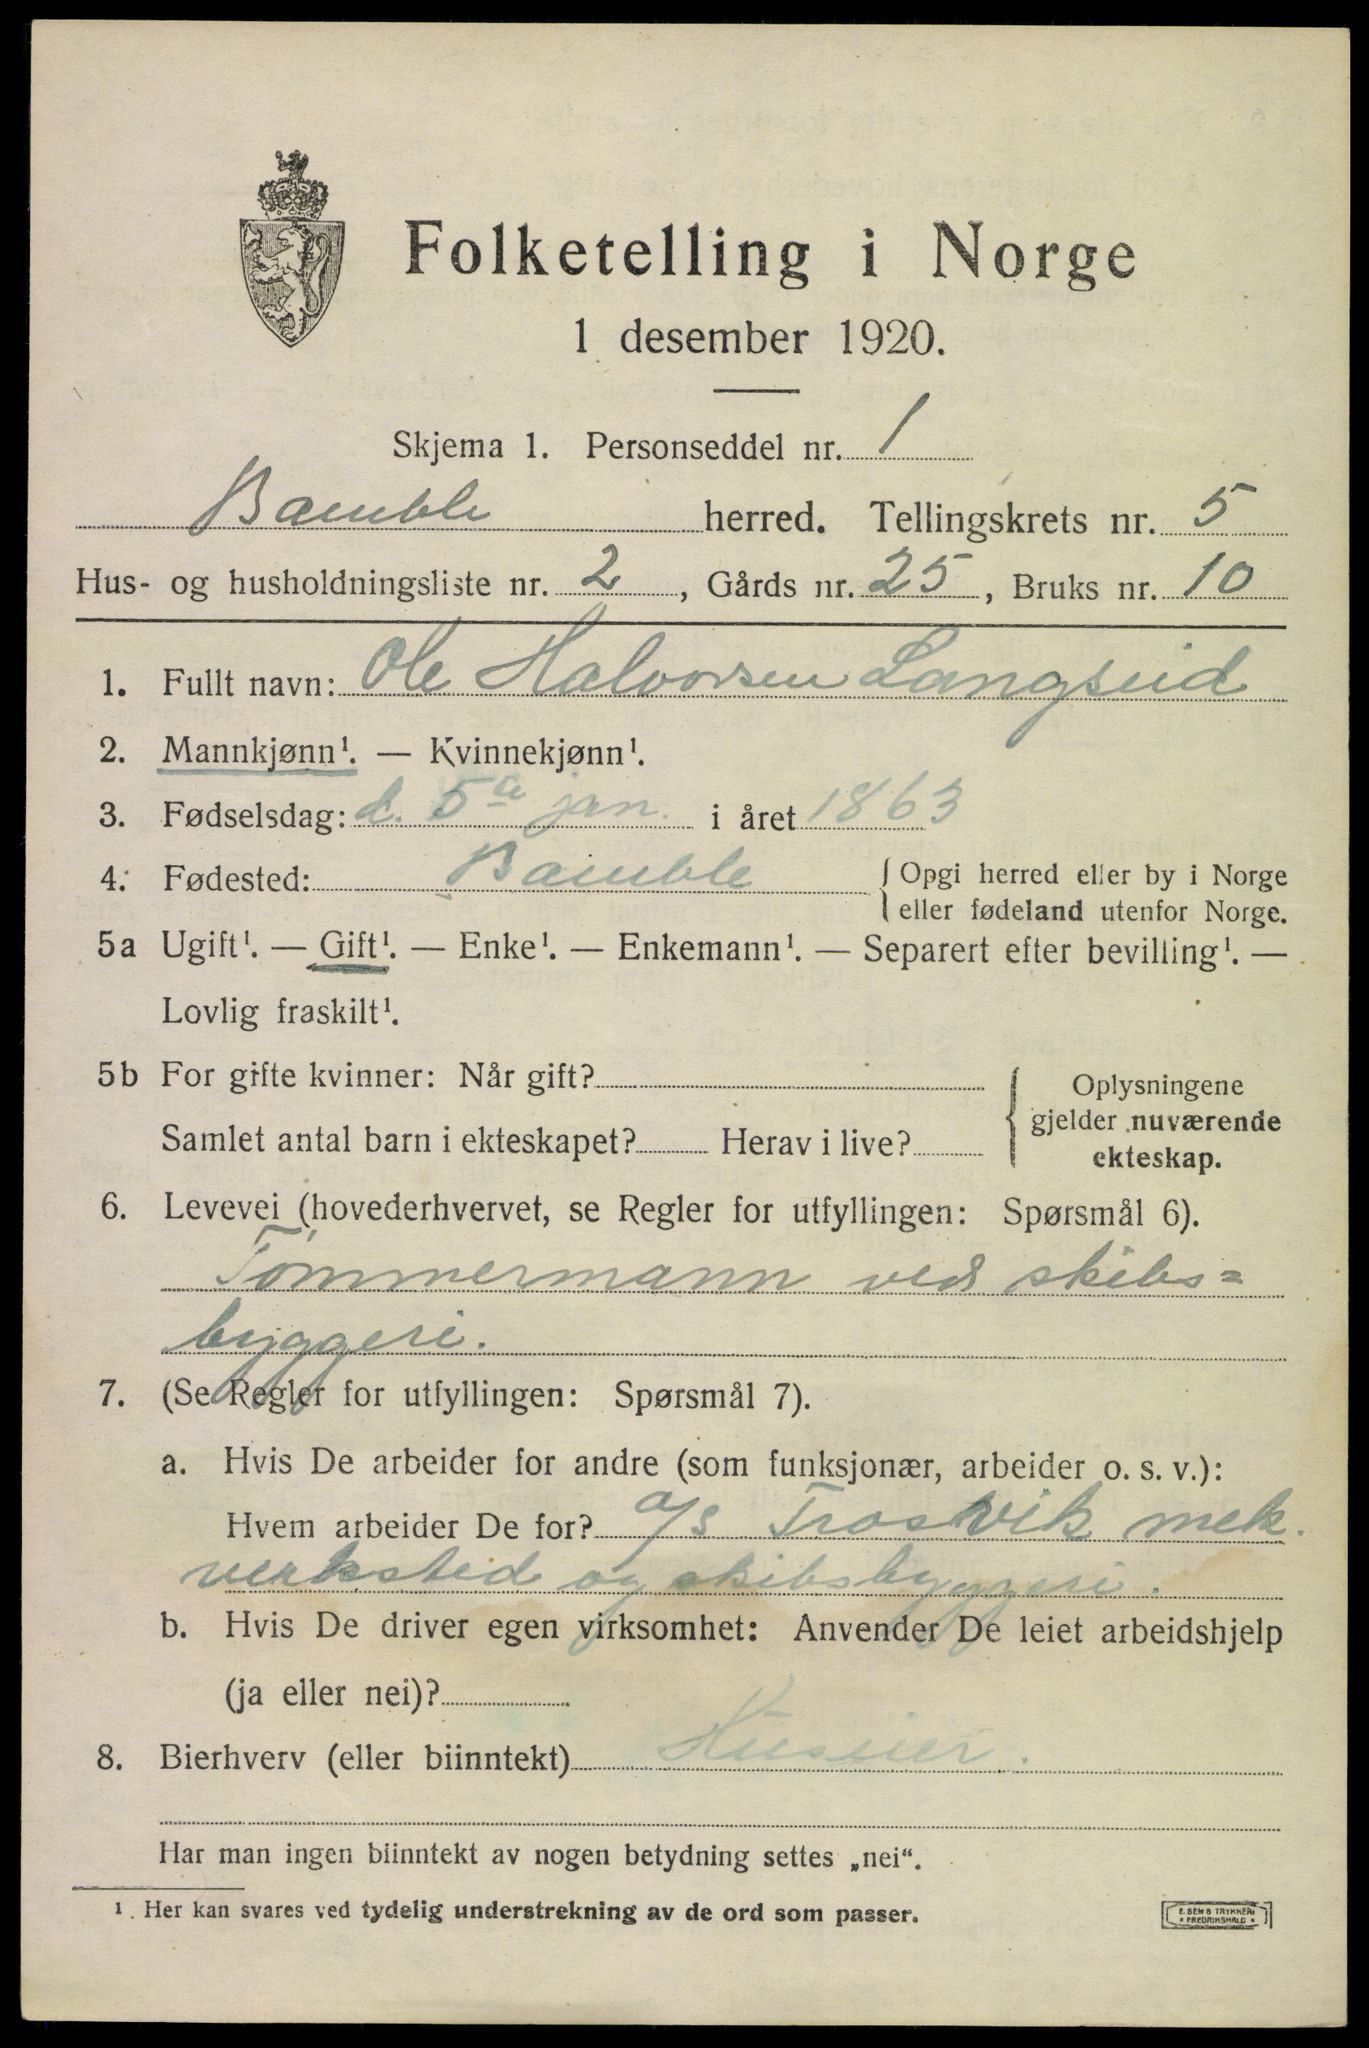 Folketelling i Norge
1 desember 1920.
Skjema 1. Personseddel nr. 1
Bamble herred. Tellingskrets nr. 5
Hus- og husholdningsliste nr. 2, Gårds nr. 25, Bruks nr. 10
1. Fullt navn: Ole Halvorsen Langseid
2. Mannkjønn¹. — Kvinnekjønn¹.
3. Fødselsdag: d. 5te jan. i året 1863
4. Fødested: Bamble { Opgi herred eller by i Norge
eller fødeland utenfor Norge.
5a Ugift¹. — Gift¹. — Enke¹. — Enkemann¹. — Separert efter bevilling¹. —
Lovlig fraskilt¹.
5b For gifte kvinner: Når gift? { Oplysningene
gjelder nuværende
Samlet antal barn i ekteskapet? Herav i live?
ekteskap.
6. Levevei (hovederhvervet, se Regler for utfyllingen: Spørsmål 6).
Tømmermann ved skibs=
byggeri.
7. (Se Regler for utfyllingen: Spørsmål 7).
a. Hvis De arbeider for andre (som funksjonær, arbeider o. s. v.):
Hvem arbeider De for? a/s Trosvik mek.
verksted og skibsbyggeri.
b. Hvis De driver egen virksomhet: Anvender De leiet arbeidshjelp
(ja eller nei)?
8. Bierhverv (eller biinntekt) Huseier.
Har man ingen biinntekt av nogen betydning settes „nei“.
¹. Her kan svares ved tydelig understrekning av de ord som passer.
E. SEMS TRYKKERI
• FREDRIKSHALD •